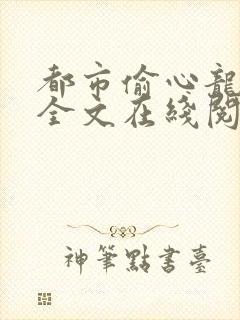 都市偷心龍
全文在綫閱
神筆點書臺